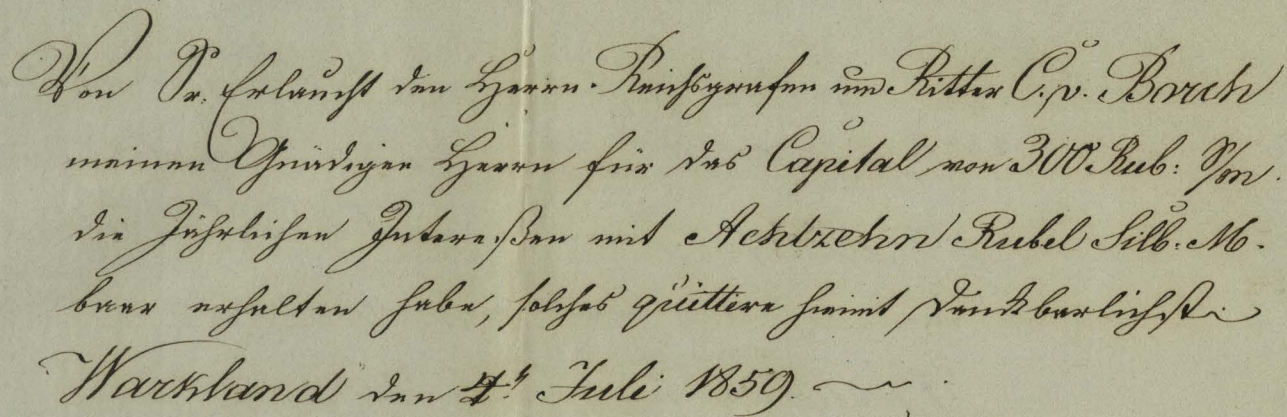 Von Sr. Erlaucht den Herrn Reichsgrafen und Ritter C. v. Borch
meinen Gnädigen Herrn für das Capital von 300 Rub: S/m.
die Jährlichen Intereßen mit Achtzehn Rubel Silb. M.
baar erhalten habe, solches quittire hiemit Dankbarlichst
Warkland den 4t Juli 1859.